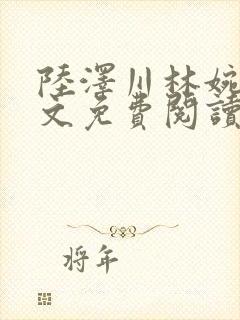 陸澤川林婉
文免費閱讀
將年